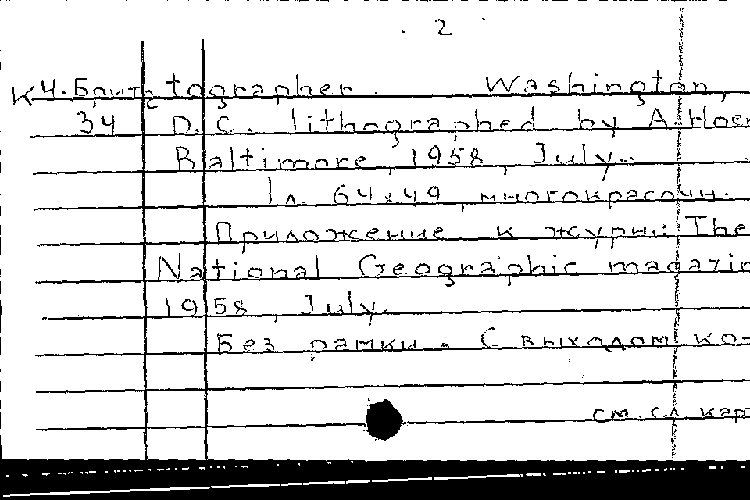 . 2 .
К4.Брит tographer. Washington,
34 D. C. lithographed by A. Hoen
Baltimore, 1958, July.
1 л. 64x49, многокрасочн.
Приложение к журн.: The
National Geographic magazin
1958, July.
Без рамки. С выходом ко-
см. сл. кар